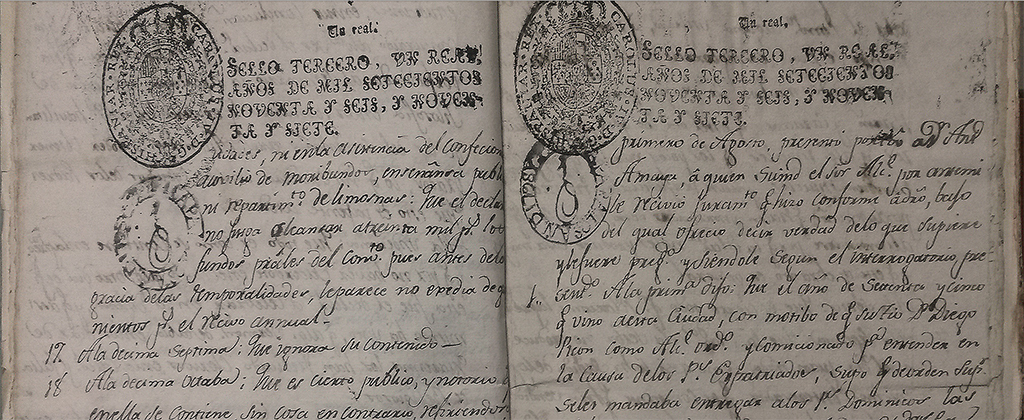 Un real.
SELLO TERCERO, UN REAL,
AÑOS DE MIL SETECIENTOS
NOVENTA Y SEIS, Y NOVEN-
TA Y SIETE.
ni en la asistencia del Confecion
auxilio de moribundos, enseñansa publ
ni repartimto de limosnas: Que el decla
no jusga alcansar atreinta mil ps los
fundos prâles del Comto pues antes dela
gracia delas temporalidades, leparece no exedia de q
nientos ps. el recivo annual-
17. Ala decima septima: Que ignora su contenido-
18 Ala decima octaba: Que es cierto publico, y notorio
enella se contiene sin cosa en contrario, refiriendos
Un real.
SELLO TERCERO, UN REAL,
AÑOS DE MIL SETECIENTOS
NOVENTA Y SEIS, Y NOVEN-
TA Y SIETE.
CAROLUS
primero de Aposo, presentó por tºo a Dn And
Amaya, á quien Sumd el Sor Alce. por antemi
le recivió Juramto q hizo conforme adro, bajo
del qual ofreció decir verdad delo que supiere
y lefuere prego y siendole segun el interrogatorio pre-
1. sentdo Ala prima dijo: Que el año de sesenta y cinco
q vino aesta Ciudad, con motibo de q su Tio Dn Diego
como Alce ordo y comicionado pa entender en
la causa delos Ps Expatriados, supo q de orden Supr
seles mandaba entregar alos Ps Dominicos las